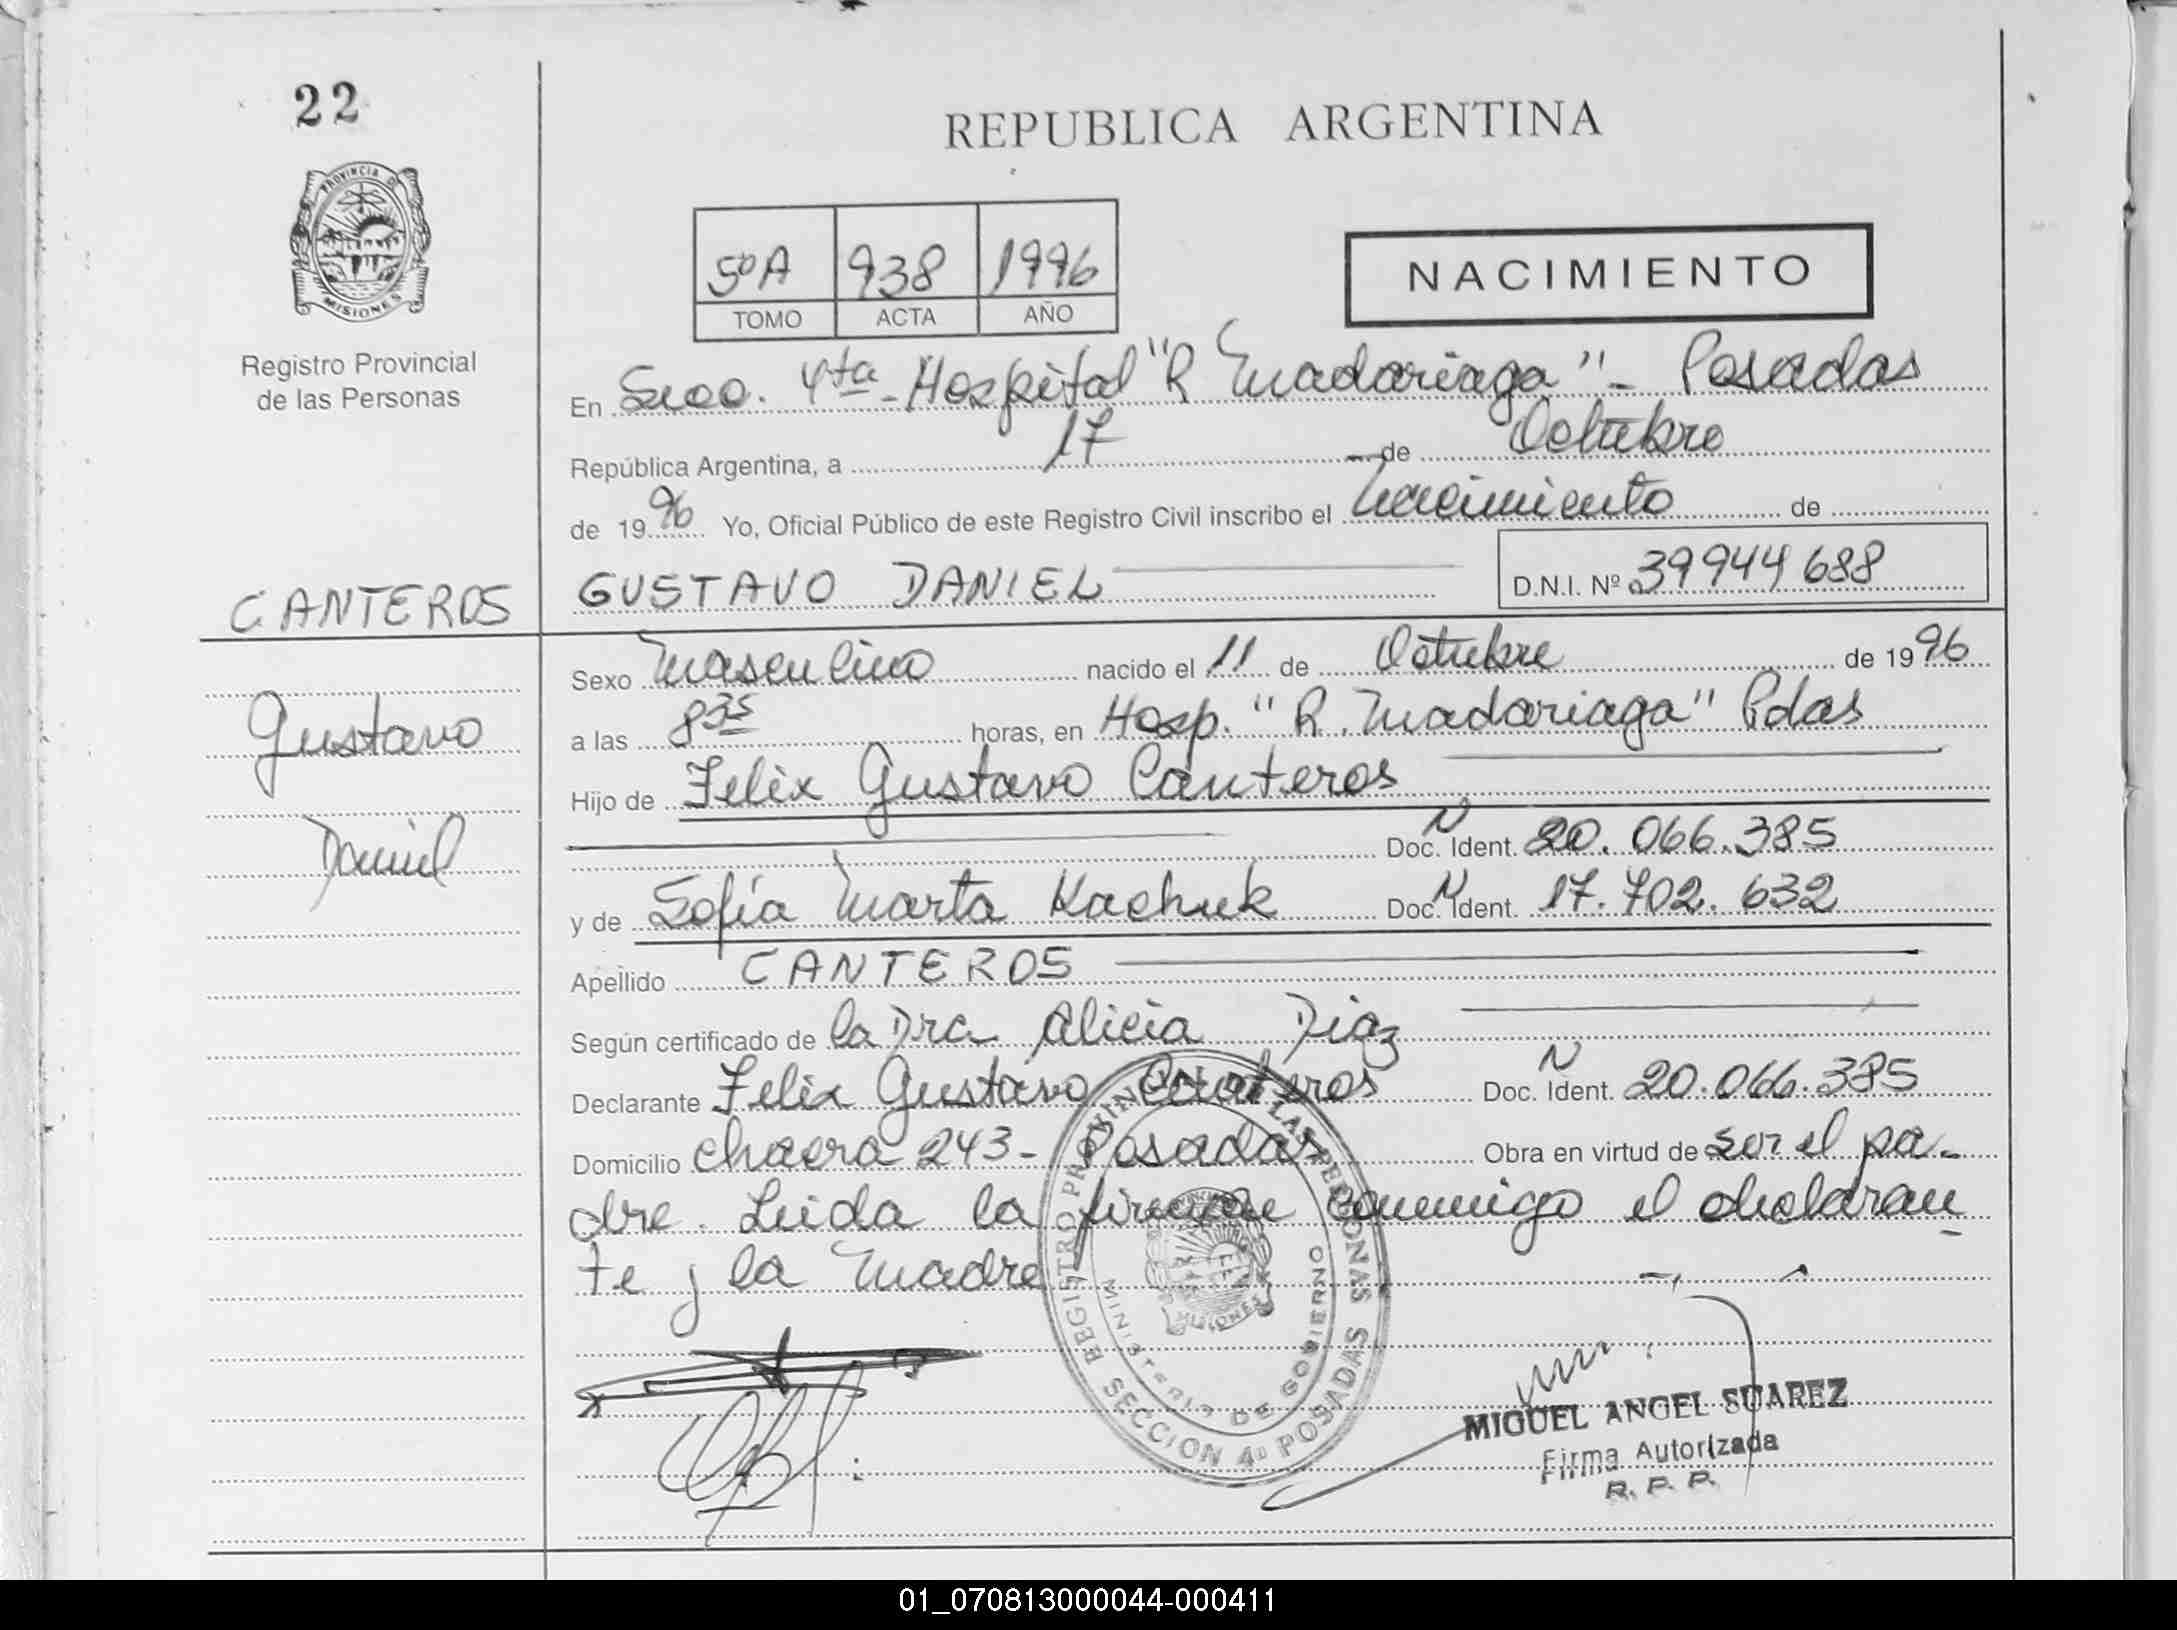 22
REPUBLICA ARGENTINA
PROVINCIA D
MISIONES
Registro Provincial
de las Personas
5º A 938 1996
TOMO ACTA AÑO
NACIMIENTO
En Secc. 4ta - Hospital "R Madariaga" - Posadas
República Argentina, a 17 de Octubre
de 1996 Yo, Oficial Público de este Registro Civil inscribo el Nacimiento de
CANTEROS
GUSTAVO DANIEL
D.N.I. Nº 39944688
Gustavo
Daniel
Sexo Masculino nacido el 11 de Octubre de 1996
a las 8 35 horas, en Hosp. "R. Madariaga" Pdas
Hijo de Felix Gustavo Canteros
Doc. Ident. N 20.066.385
y de Sofía Marta Kachuk Doc. Ident. N 17.702.632
Apellido CANTEROS
Según certificado de la Dra Alicia Diaz
Declarante Felix Gustavo Canteros Doc. Ident. N 20.066.385
Domicilio chacra 243 - Posadas Obra en virtud de ser el pa-
dre. Leida la firman conmigo el declaran
te y la Madre
REGISTRO PROVINCIAL DE LAS PERSONAS
MINISTERIO DE GOBIERNO
SECCION 4º POSADAS
MISIONES
MIGUEL ANGEL SUAREZ
Firma Autorizada
R. P. P.
01_070813000044-000411